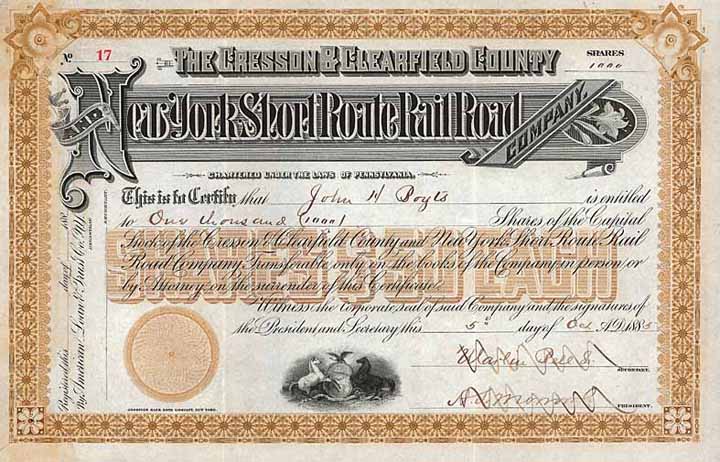 No 17
THE CRESSON & CLEARFIELD COUNTY
SHARES
1000
AND
New York Short Route Rail Road
COMPANY.
CHARTERED UNDER THE LAWS OF PENNSYLVANIA.
This is to Certify that John H Boyts is entitled
to One thousand (1000) Shares of the Capital
Stock of the Cresson & Clearfield County and New York Short Route Rail
Road Company, Transferable only on the books of the Company in person or
by Attorney, on the surrender of this Certificate.
SHARES $50 EACH
Witness the corporate seal of said Company and the signatures of
the President and Secretary this 5th day of Oct A.D. 1885
SECRETARY.
PRESIDENT.
AMERICAN BANK NOTE COMPANY, NEW YORK.
Registered this day of 188
By American Loan & Trust Co. N.Y.